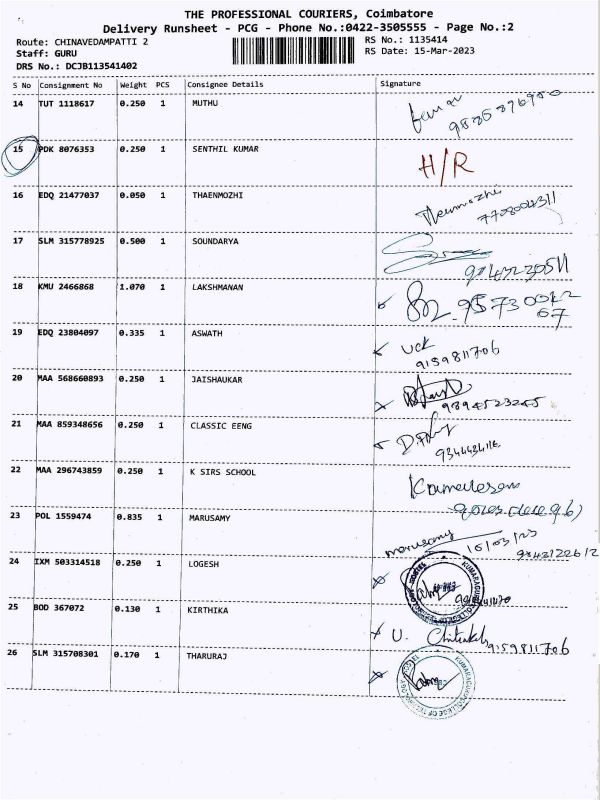 THE PROFESSIONAL COURIERS, Coimbatore
Delivery Runsheet - PCG - Phone No.:0422-3505555 - Page No.:2
Route: CHINAVEDAMPATTI 2
RS No.: 1135414
Staff: GURU
RS Date: 15-Mar-2023
DRS No.: DCJB113541402
S No Consignment No Weight PCS Consignee Details Signature
14 TUT 1118617 0.250 1 MUTHU
15 PDK 8076353 0.250 1 SENTHIL KUMAR H/R
16 EDQ 21477037 0.050 1 THAENMOZHI
17 SLM 315778925 0.500 1 SOUNDARYA
18 KMU 2466868 1.070 1 LAKSHMANAN
19 EDQ 23804097 0.335 1 ASWATH
9159811706
20 MAA 568660893 0.250 1 JAISHAUKAR
9894523245
21 MAA 859348656 0.250 1 CLASSIC EENG
22 MAA 296743859 0.250 1 K SIRS SCHOOL
23 POL 1559474 0.835 1 MARUSAMY
marusamy 15/03/23
24 IXM 503314518 0.250 1 LOGESH
25 BOD 367072 0.130 1 KIRTHIKA
U. 9159811706
26 SLM 315708301 0.170 1 THARURAJ